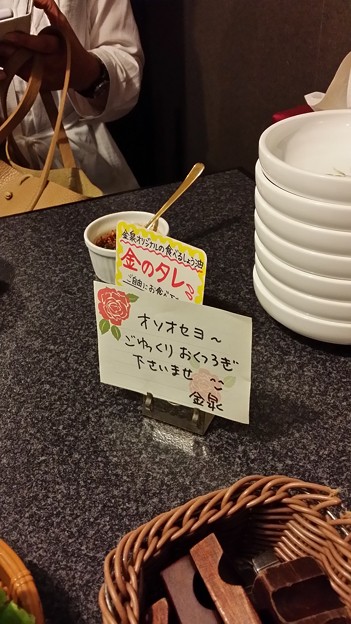 金泉オリジナルの食べるしょう油
金のタレ
ご自由にお使い下さい
オソオセヨ〜
ごゆっくりおくつろぎ
下さいませ
金泉